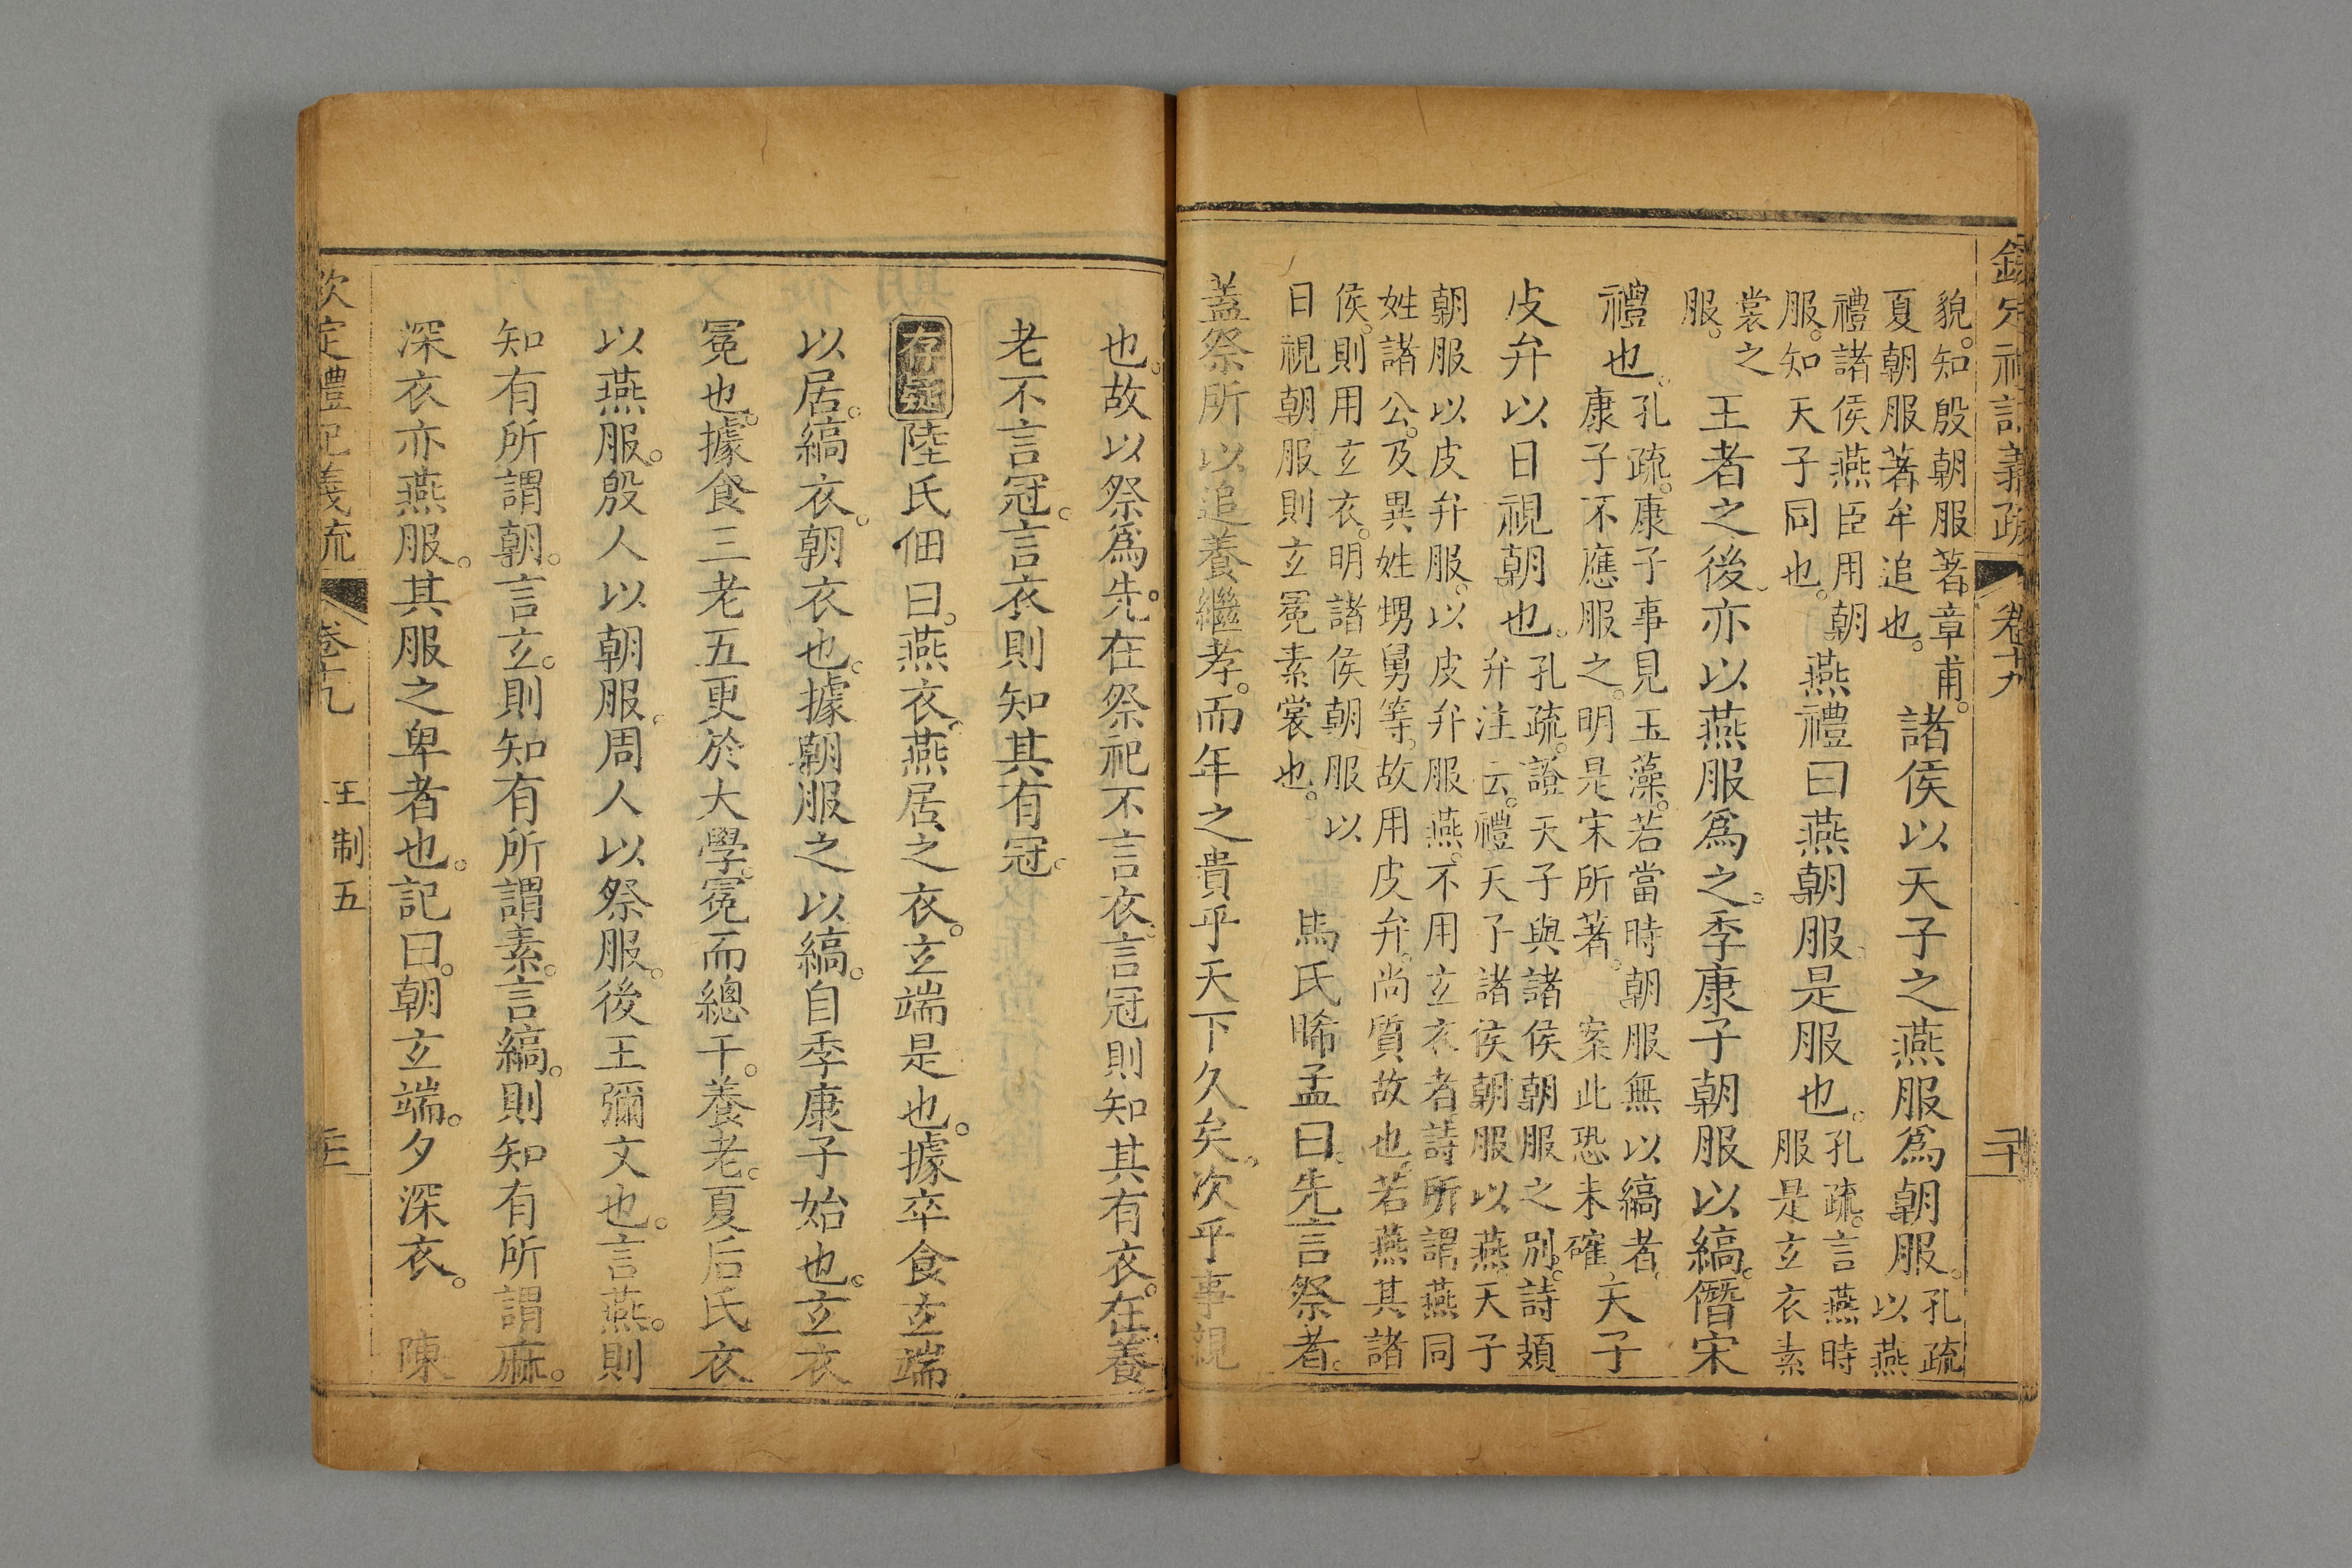 欽定禮記義疏 卷十九 二十
貌。知殷朝服著。章甫。
夏朝服著牟追也。
諸侯以天子之燕服爲朝服。
孔疏
以燕
禮諸侯燕臣用朝
服。知天子同也。
燕禮曰燕朝服是服也。
孔疏。言燕時
服是玄衣素
裳之
服。
王者之後亦以燕服爲之。季康子朝服以縞。僭宋
禮也。
孔疏。康子事見玉藻。若當時朝服無以縞者。
康子不應服之。明是宋所著。 案此恐未確。
天子
皮弁以日視朝也。
孔疏。證天子與諸侯朝服之別。詩頍
弁注云。禮天子諸侯朝服以燕。天子
朝服以皮弁服。以皮弁服燕。不用玄衣者詩所謂燕同
姓諸公。及異姓甥舅等。故用皮弁。尚質故也。若燕其諸
侯。則用玄衣。明諸侯朝服以
日視朝服則玄冕素裳也。
馬氏睎孟曰。先言祭者。
蓋祭所以追養繼孝。而年之貴乎天下久矣。次乎事親
也。故以祭爲先。在祭祀不言衣。言冠則知其有衣。在養
老不言冠。言衣則知其有冠。
存疑 陸氏佃曰。燕衣。燕居之衣。玄端是也。據卒食玄端
以居。縞衣。朝衣也。據朝服之以縞。自季康子始也。玄衣
冕也。據食三老五更於大學。冕而總干。養老。夏后氏衣
以燕服。殷人以朝服。周人以祭服。後王彌文也。言燕。則
知有所謂朝。言玄。則知有所謂素。言縞。則知有所謂麻。
深衣亦燕服。其服之卑者也。記曰。朝玄端。夕深衣。 陳
欽定禮記義疏 卷十九 王制五